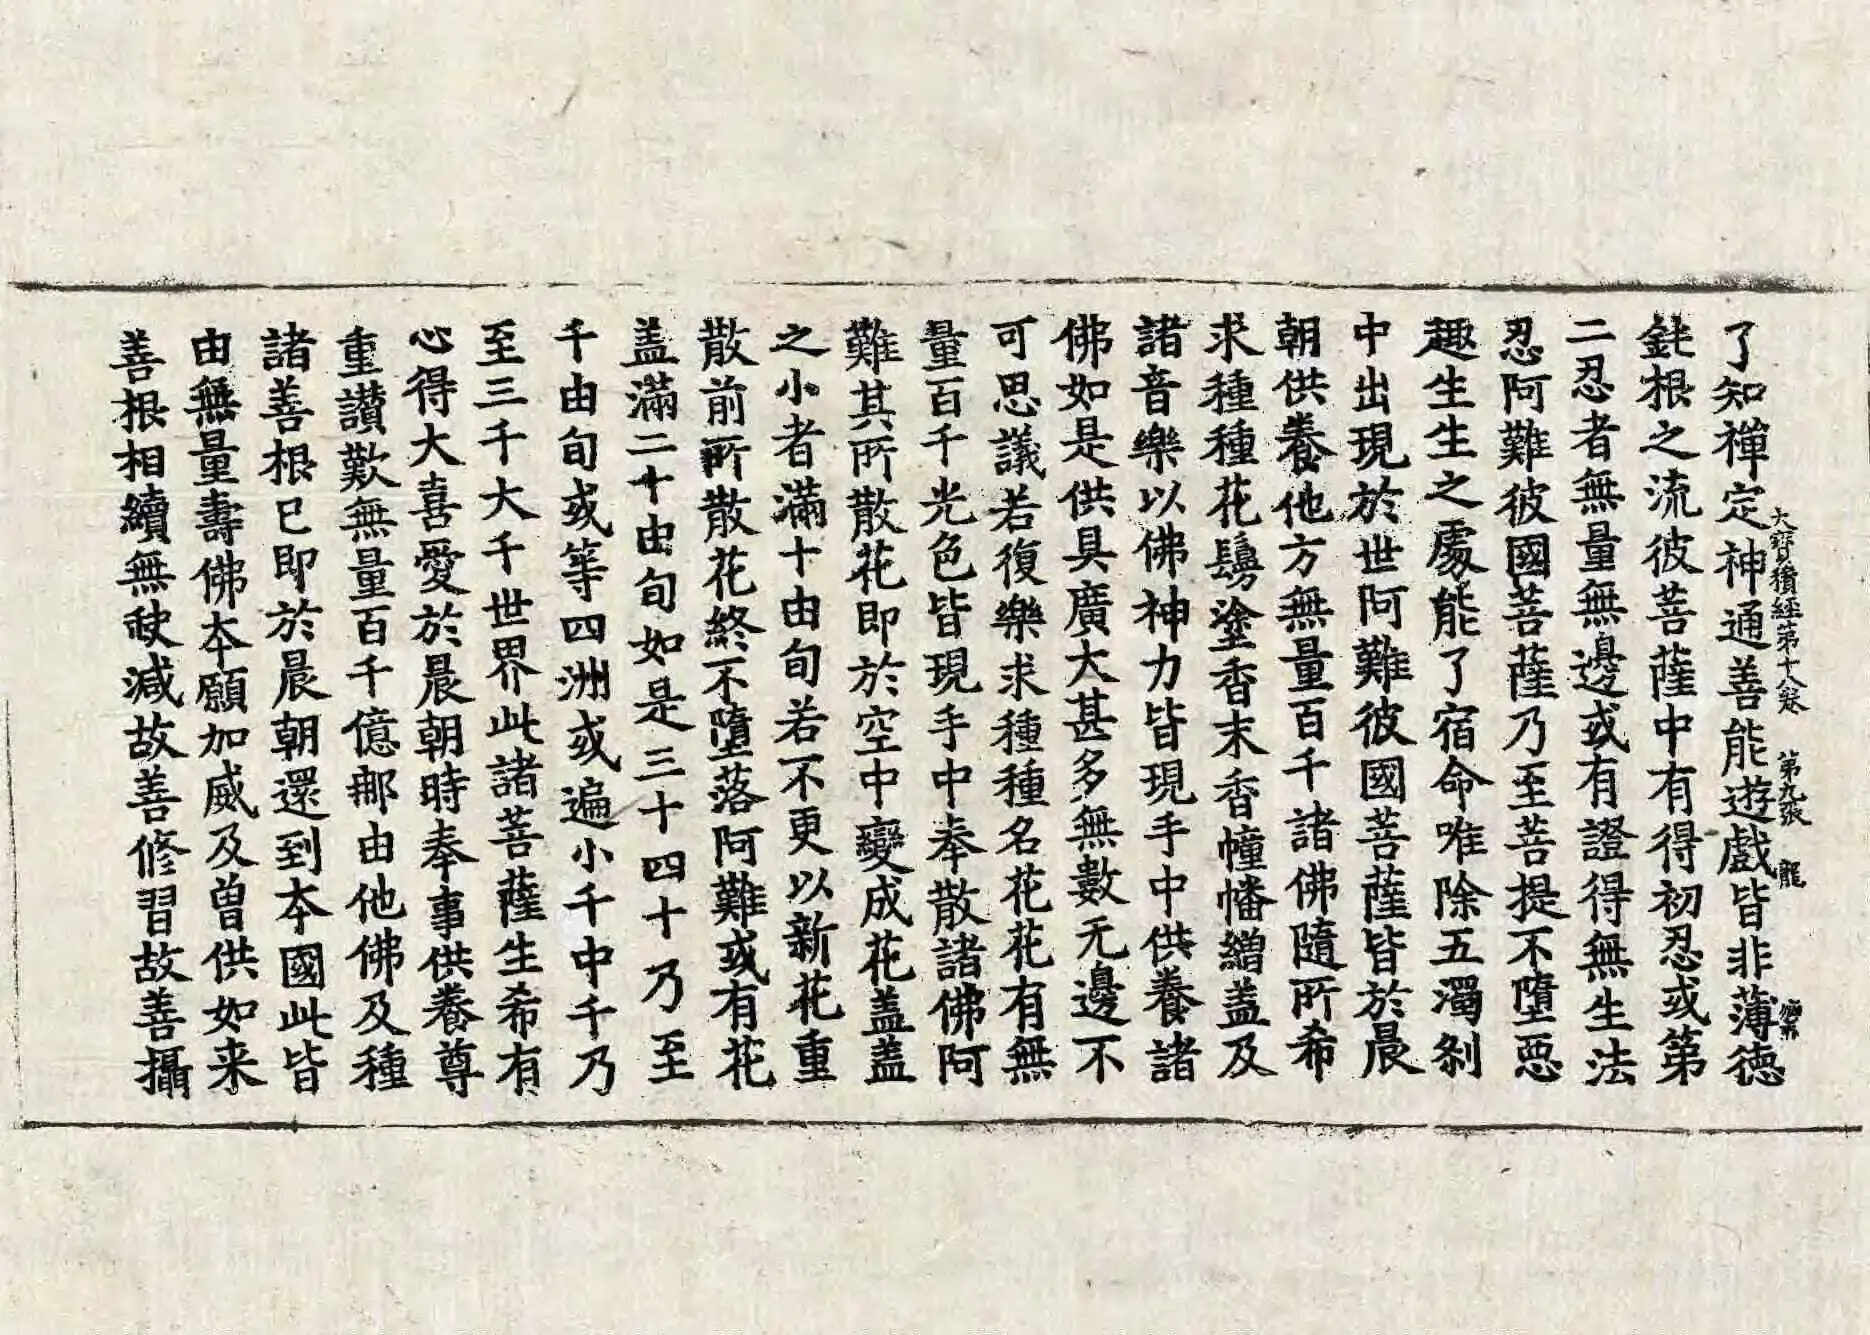 了知禪定神通善能遊戲皆非薄德
大寶積經第十八卷 第九張 龍
鈍根之流彼菩薩中有得初忍或第
二忍者無量無邊或有證得無生法
忍阿難彼國菩薩乃至菩提不墮惡
趣生生之處能了宿命唯除五濁刹
中出現於世阿難彼國菩薩皆於晨
朝供養他方無量百千諸佛隨所希
求種種花鬘塗香末香幢幡繒盖及
諸音樂以佛神力皆現手中供養諸
佛如是供具廣大甚多無數无邊不
可思議若復樂求種種名花花有無
量百千光色皆現手中奉散諸佛阿
難其所散花即於空中變成花盖盖
之小者滿十由旬若不更以新花重
散前所散花終不墮落阿難或有花
盖滿二十由旬如是三十四十乃至
千由旬或等四洲或遍小千中千乃
至三千大千世界此諸菩薩生希有
心得大喜愛於晨朝時奉事供養尊
重讃歎無量百千億那由他佛及種
諸善根已即於晨朝還到本國此皆
由無量壽佛本願加威及曾供如来
善根相續無缺減故善修習故善攝